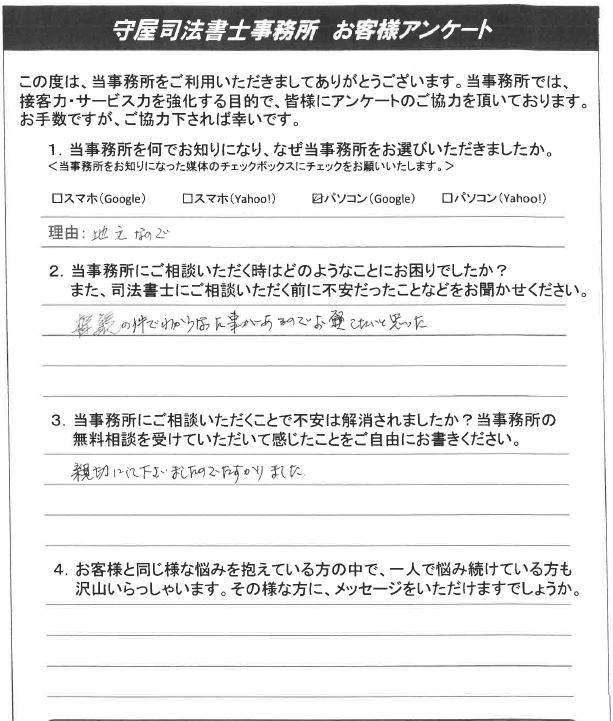 守屋司法書士事務所 お客様アンケート
この度は、当事務所をご利用いただきましてありがとうございます。当事務所では、
接客力・サービス力を強化する目的で、皆様にアンケートのご協力を頂いております。
お手数ですが、ご協力下されば幸いです。
1. 当事務所を何でお知りになり、なぜ当事務所をお選びいただきましたか。
＜当事務所をお知りになった媒体のチェックボックスにチェックをお願いいたします。＞
□スマホ(Google) □スマホ(Yahoo!) ☑パソコン(Google) □パソコン(Yahoo!)
理由: 地元なので
2. 当事務所にご相談いただく時はどのようなことにお困りでしたか？
また、司法書士にご相談いただく前に不安だったことなどをお聞かせください。
の件でわからない事があるのでお願いしたいと思った
3. 当事務所にご相談いただくことで不安は解消されましたか？当事務所の
無料相談を受けていただいて感じたことをご自由にお書きください。
親切にして下さいましたのでたすかりました
4. お客様と同じ様な悩みを抱えている方の中で、一人で悩み続けている方も
沢山いらっしゃいます。その様な方に、メッセージをいただけますでしょうか。